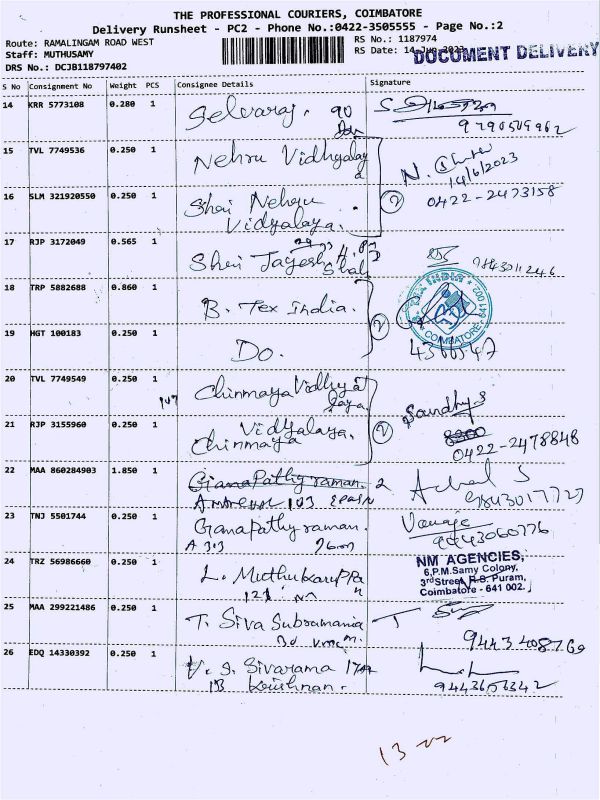 THE PROFESSIONAL COURIERS, COIMBATORE
Delivery Runsheet - PC2 - Phone No.:0422-3505555 - Page No.:2
Route: RAMALINGAM ROAD WEST
Staff: MUTHUSAMY
DRS No.: DCJB118797402
RS No.: 1187974
RS Date: 14-Jun-2023
DOCUMENT DELIVERY
S No Consignment No Weight PCS Consignee Details Signature
14 KRR 5773108 0.280 1 Selvaraj. 90
15 TVL 7749536 0.250 1 Nehru Vidhyalaya
N.
14/6/2023
16 SLM 321920550 0.250 1 Shri Nehru
Vidyalaya.
2
0422-2473158
17 RJP 3172049 0.565 1 Shri Jayesh H.
Shah
9843011246
18 TRP 5882688 0.860 1 B. Tex India.
2
B. TEX INDIA
COIMBATORE
19 HGT 100183 0.250 1 Do.
20 TVL 7749549 0.250 1 Chinmaya Vidhya
laya
Sandhya S
21 RJP 3155960 0.250 1 Vidyalaya.
Chinmaya
2
0422-2478848
22 MAA 860284903 1.850 1
9843017727
23 TNJ 5501744 0.250 1 Ganapathy raman.
A 303
9443060776
24 TRZ 56986660 0.250 1 L. Muthukaruppan
NM AGENCIES,
6,P.M.Samy Colony,
3rd Street, R.S. Puram,
Coimbatore - 641 002.
25 MAA 299221486 0.250 1 T. Siva Subramania
m.
9443408769
26 EDQ 14330392 0.250 1 V. S. Sivarama
Krishnan.
9443656342